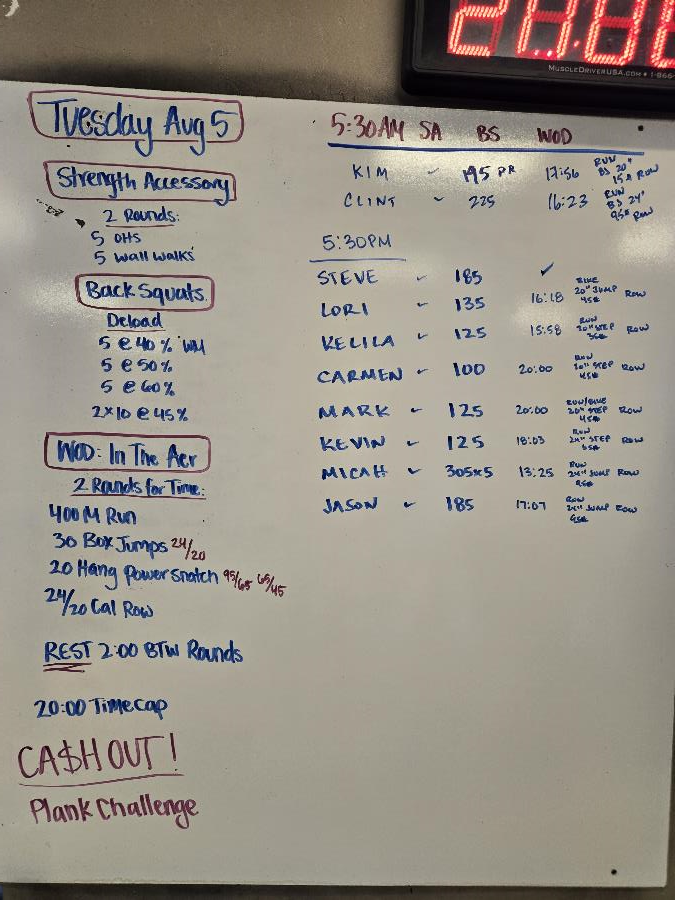 MUSCLEDRIVERUSA.COM • 1-866
Tuesday Aug 5
Strength Accessory
2 Rounds:
5 OHS
5 Wall Walks
Back Squats
Deload
5 @ 40% WM
5 @ 50%
5 @ 60%
2x10 @ 45%
WOD: In The Aer
2 Rounds for Time:
400 M Run
30 Box Jumps 24/20
20 Hang Power Snatch 95/65 65/45
24/20 Cal Row
REST 2:00 BTW Rounds
20:00 Time Cap
CA$H OUT!
Plank Challenge
5:30AM SA BS WOD
KIM ✓ 195 PR 17:56 RUN BS 20" 15# ROW
CLINT ✓ 225 16:23 RUN BS 24" 95# ROW
5:30PM
STEVE ✓ 185 ✓
LORI ✓ 135 16:18 BIKE 20" JUMP 45# ROW
KELILA ✓ 125 15:58 RUN 20" STEP 35# ROW
CARMEN ✓ 100 20:00 RUN 20" STEP 45# ROW
MARK ✓ 125 20:00 RUN/BIKE 20" STEP 45# ROW
KEVIN ✓ 125 18:03 RUN 24" STEP 55# ROW
MICAH ✓ 305x5 13:25 RUN 24" JUMP 95# ROW
JASON ✓ 185 17:07 ROW 24" JUMP 95# ROW